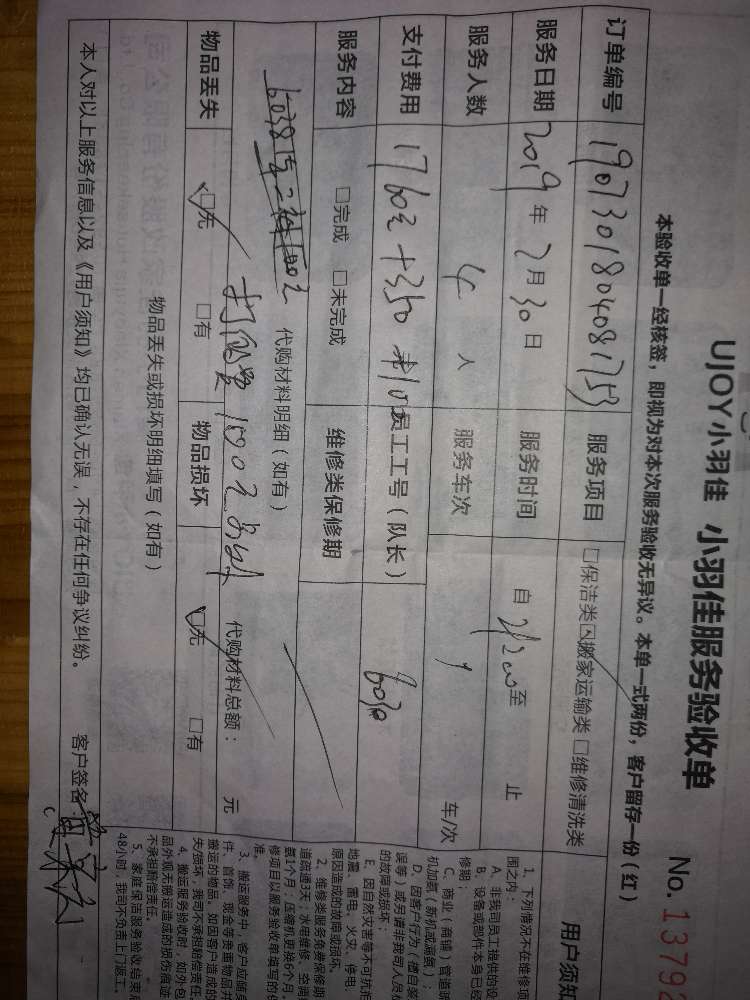 UJOY小羽佳 小羽佳服务验收单
No. 1379
本验收单一经核签，即视为对本次服务验收无异议。本单一式两份，客户留存一份（红）
订单编号 1907301804081753 服务项目 □保洁类 ☑搬家运输类 □维修清洗类
服务日期 2019年7月30日 服务时间 自 至 止
服务人数 4人 服务车次 1 车/次
支付费用 1760元+350 员工工号（队长）
服务内容 □完成 □未完成 维修类保修期
代购材料明细（如有） 代购材料总额： 元
物品丢失 ☑无 □有 物品损坏 ☑无 □有
物品丢失或损坏明细填写（如有）
本人对以上服务信息以及《用户须知》均已确认无误，不存在任何争议纠纷。 客户签名：
用户须知
1、下列情况不在维修项
围之内：
A、非我司员工提供的设
B、设备或部件本身已经
修期；
C、商业（商铺）管道
机加氨（新机或漏氨）；
D、因客户行为（擅自装
误等）或另请非我司人员
的故障或损坏；
E、因自然灾害等不可抗拒
地震、雷电、火灾、停电
原因造成的故障或损坏。
2、维修类服务免费保修期
道疏通3天；水电维修、空调
氨1个月；压缩机更换6个月，
修项目以服务验收单填写的保
准。
3、搬运服务中，客户应随身
件、首饰、现金等贵重物品并
搬运的物品，如因客户造成的
失/损坏，我司不承担赔偿责任
4、搬运服务验收时，如外包
品外观无搬运造成的损伤痕迹
不承担赔偿责任。
5、家庭保洁服务验收结束后
48小时，我司不负责上门返工。